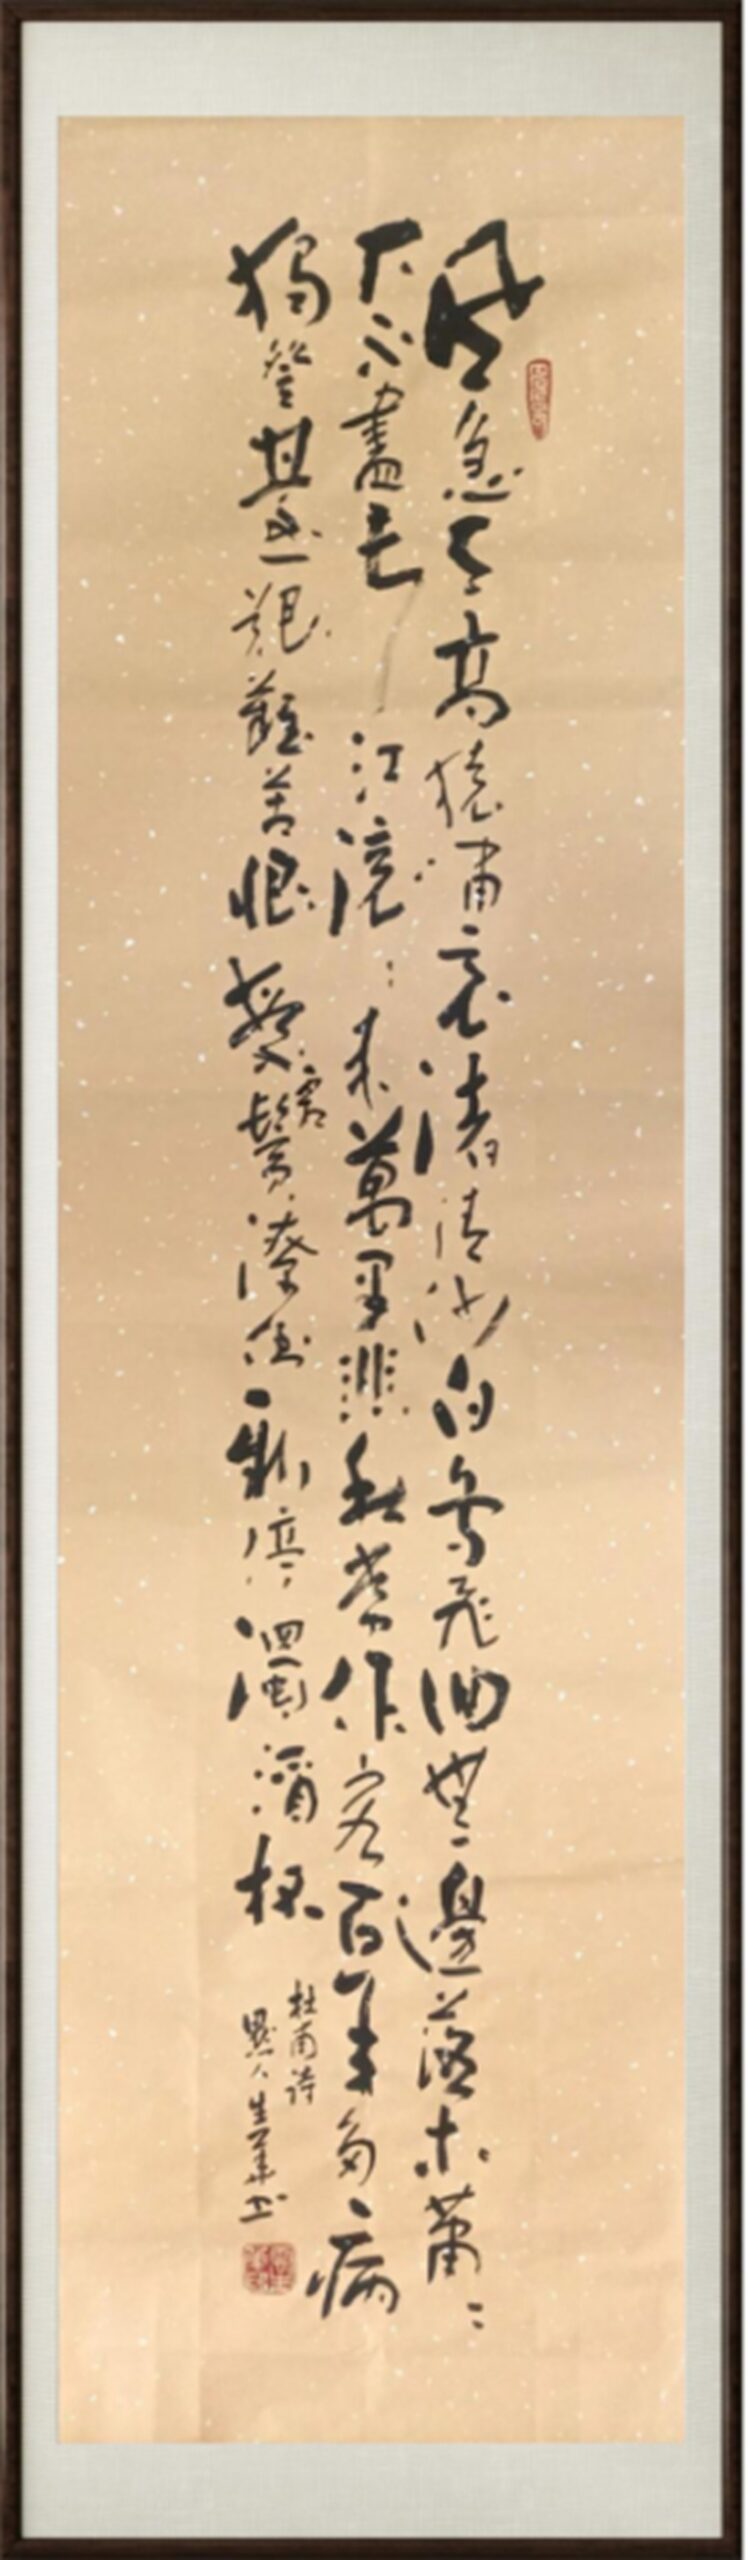 風急天高猿嘯哀渚清沙白鳥飛迴無邊落木蕭〻
下不盡長江滾〻来萬里悲秋常作客百年多病
獨登臺艱難苦恨繁霜鬢潦倒新停濁酒杯
杜甫诗